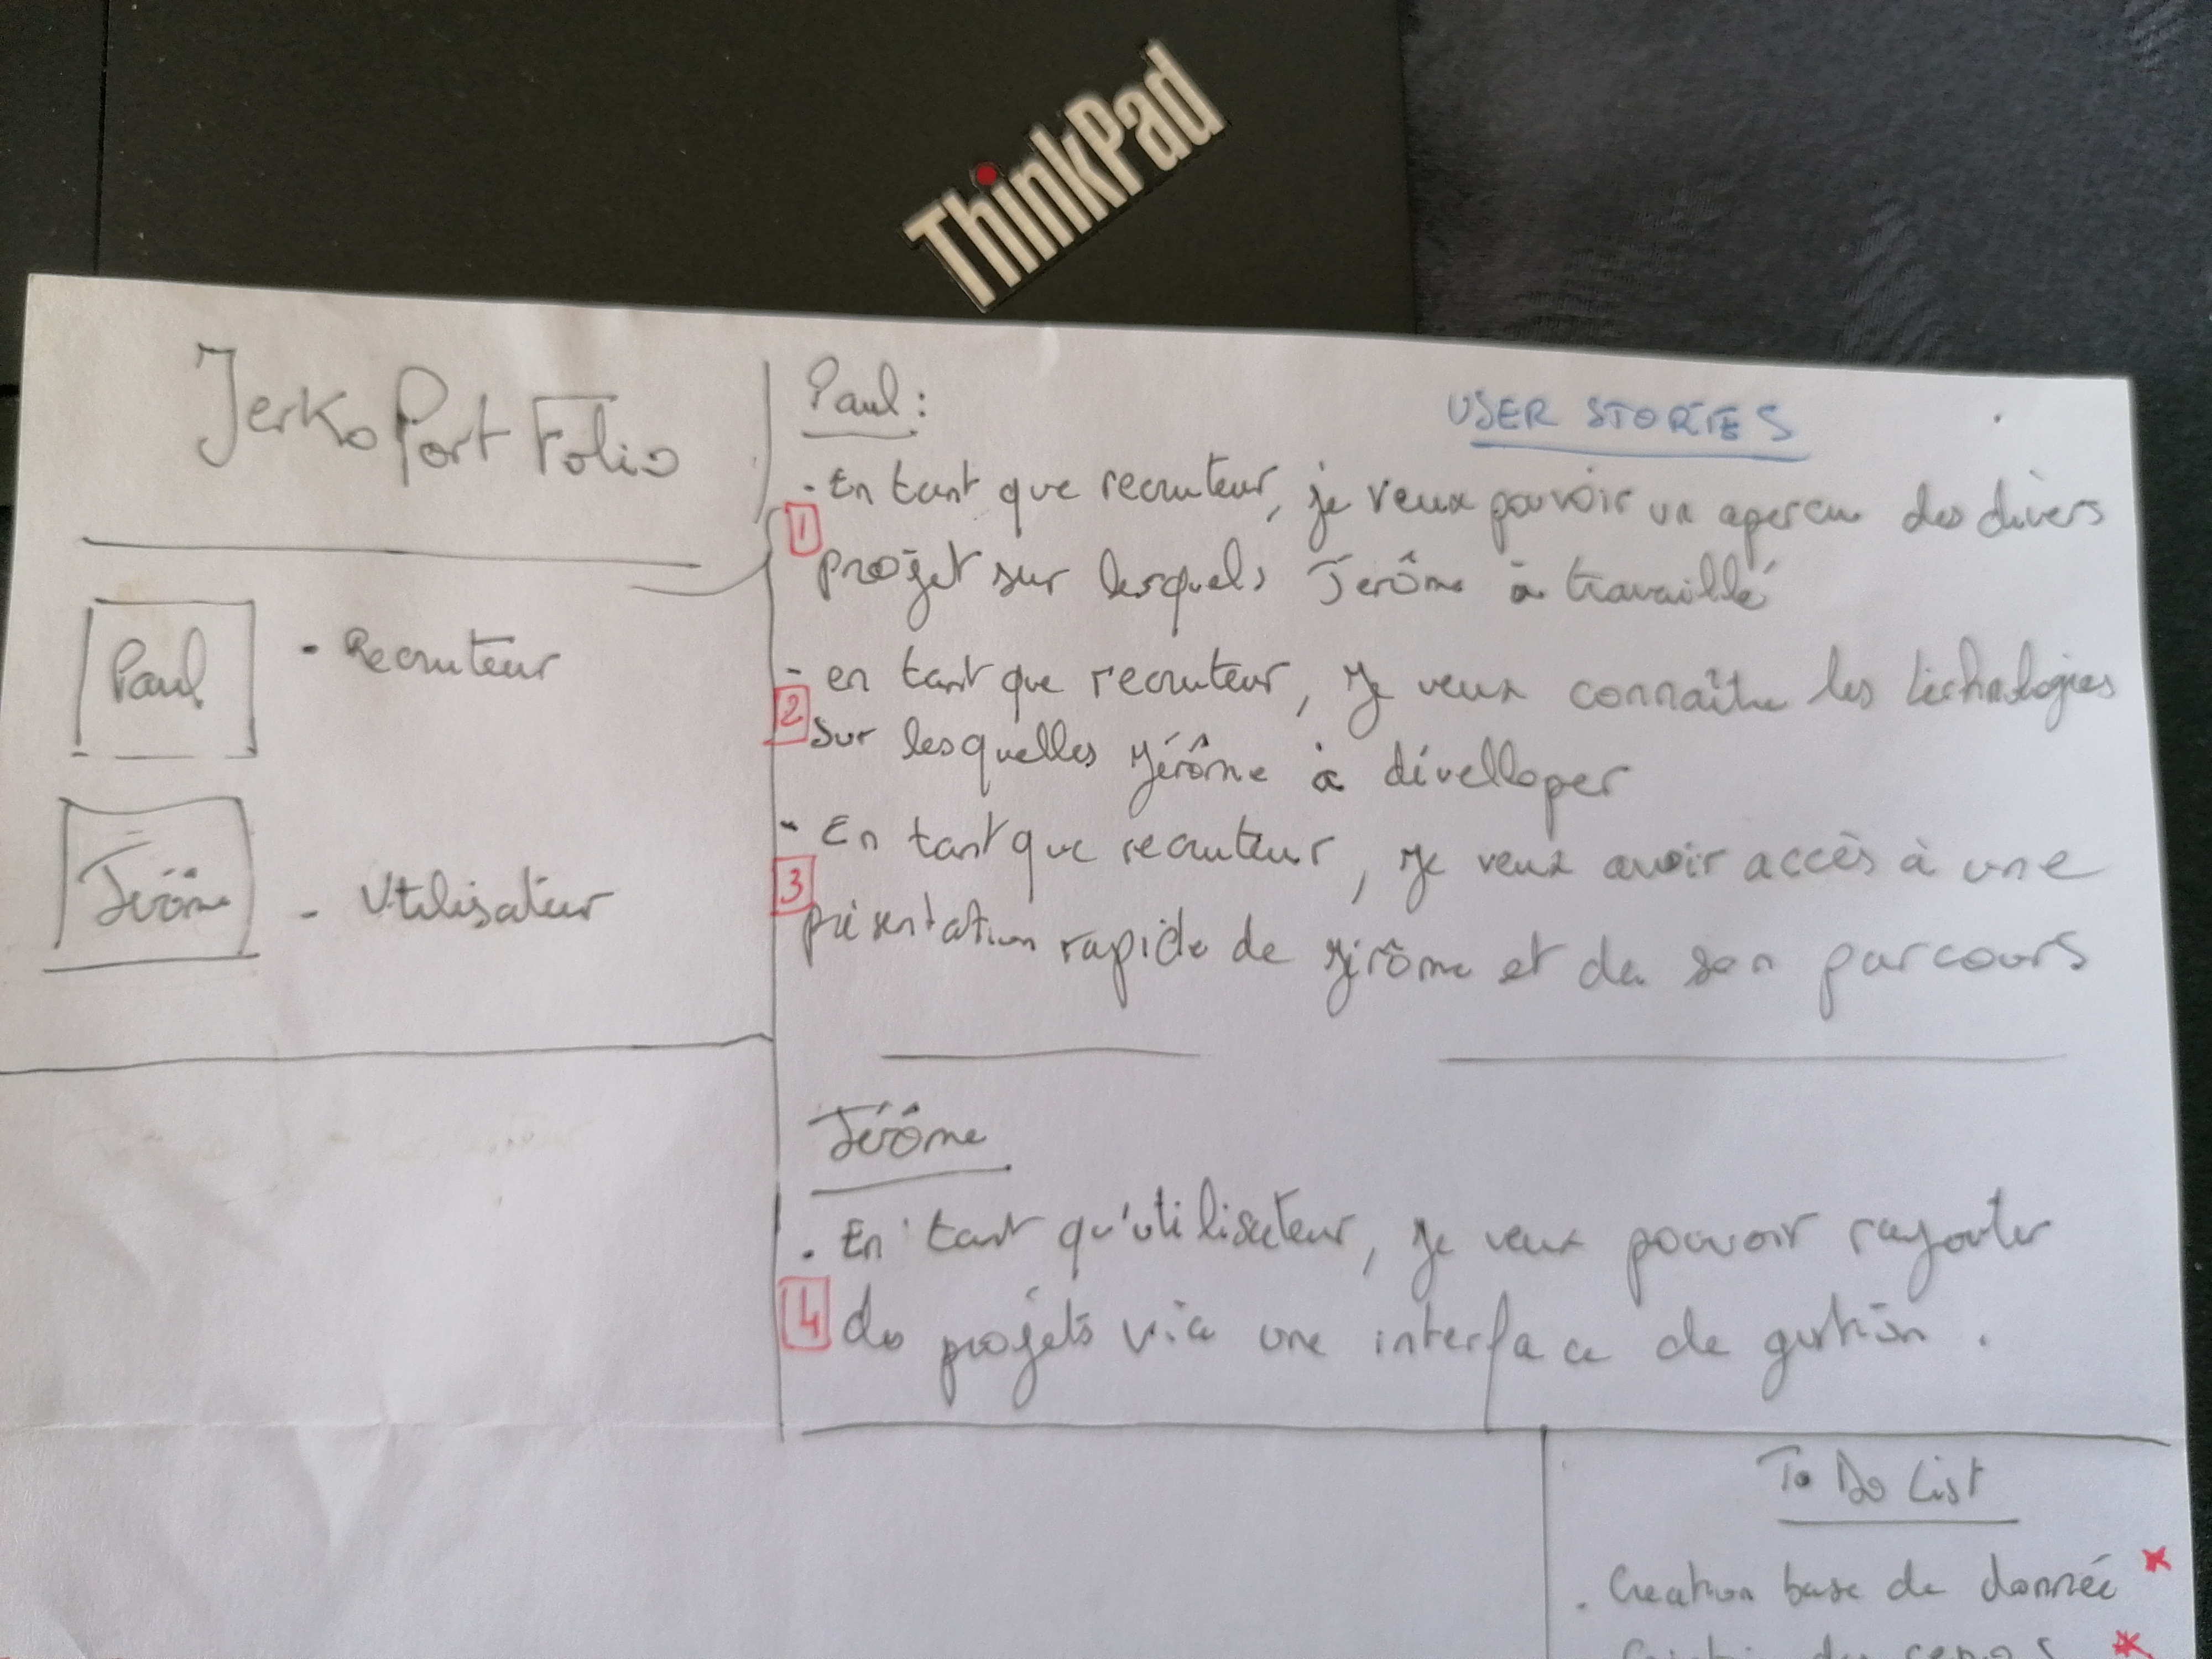 ThinkPad
Jerko PortFolio
Paul
- Recruteur
Jérôme
- Utilisateur
USER STORIES
Paul :
- En tant que recruteur, je veux pouvoir un apercu des divers
1
projet sur lesquels Jerôme à travaillé
- en tant que recruteur, je veux connaître les technologies
2
sur lesquelles Jérôme à develloper
- En tant que recruteur, je veux avoir accès à une
3
présentation rapide de Jérôme et de son parcours
Jérôme
. En tant qu'utilisateur, je veux pouvoir rajouter
4
des projets via une interface de gestion .
To Do List
. Creation base de donnée